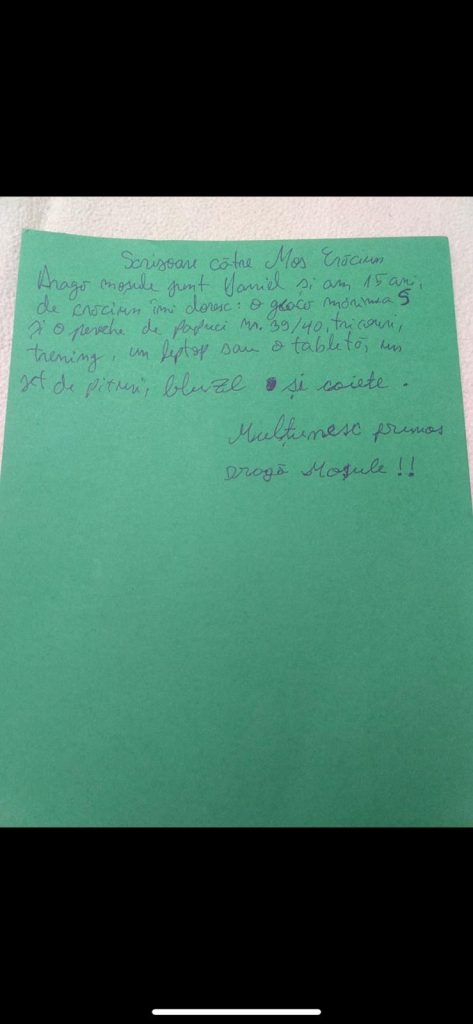 Scrisoare către Moș Crăciun
Dragă moșule sunt Daniel si am 15 ani,
de crăciun îmi doresc: o geacă mărimea S
și o pereche de papuci nr. 39/40, tricouri,
trening, un leptop sau o tabletă, un
set de pixuri, bluze și caiete.
Mulțumesc frumos
Dragă Moșule !!